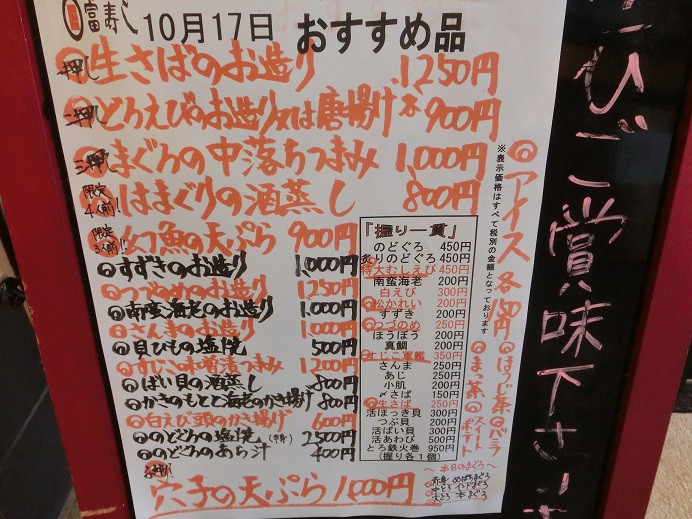 富寿し 10月17日 おすすめ品
一押し 生さばのお造り 1250円
二押し どろえびのお造り又は唐揚げ 900円
三押し まぐろの中落ちつまみ 1,000円
限定4人前! はまぐりの酒蒸し 800円
限定 幻魚の天ぷら 900円
すずきのお造り 1,000円
つづのめのお造り 1250円
南蛮海老のお造り 1,000円
さんまのお造り 1,000円
貝ひもの塩焼 500円
すじこ味噌漬つまみ 1200円
ばい貝の酒蒸し 800円
かきのもとと海老のかき揚げ 800円
白えび頭のかき揚げ 600円
のどぐろの塩焼(半身) 2500円
のどぐろのあら汁 400円
穴子の天ぷら 1,000円
『握り一貫』
のどぐろ 450円
炙りのどぐろ 450円
特大むしえび 450円
南蛮海老 200円
白えび 300円
松かれい 200円
すずき 200円
つづのめ 250円
ほうぼう 200円
真鯛 200円
すじこ軍艦 350円
さんま 250円
あじ 250円
小肌 200円
〆さば 150円
生さば 250円
活ほっき貝 300円
つぶ貝 200円
活ばい貝 300円
活あわび 500円
とろ鉄火巻 950円
(握り各1個)
※表示価格はすべて税別の金額となっております
アイス各150円
ほうじ茶
バニラ
まっ茶
スイートポテト
～本日のまぐろ～
赤身 めばちまぐろ
中とろ インドまぐろ
大とろ 本まぐろ
ご賞味下さい